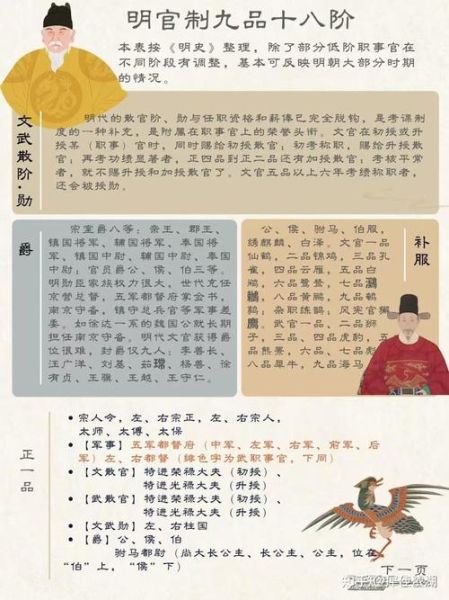 明官制九品十八阶
本表按《明史》整理，除了部分低阶职事官在
不同阶段有调整，基本可反映明朝大部分时期
的情况。
文武散阶·勋
明代的散官阶、勋与任职资格和薪俸已完全脱钩，是考课制
度的一种补充，是附属在职事官上的荣誉头衔。文官在初授或升
授某（职事）官时，同时赐给初授散官；初考称职，赐给升授散
官；再考功绩显著者，正四品到正二品还有加授散官；考核平常
者，就不赐升授和加授散官了。文官五品以上六年考绩称职者，
还会被授勋。
爵
宗室爵八等：亲王、郡王、
镇国将军、辅国将军、奉国将
军、镇国中尉、辅国中尉、奉国
中尉；官员爵公、侯、伯三等。
明勋臣家族权力很大，世代充任
京营总督，五军都督府掌金书，
南京守备，镇守总兵官等军事差
委。如徐达一系的魏国公就长期
担任南京守备。明代文官获得爵
位很难，封爵仅九人：李善长、
汪广洋、刘基、茹瑺、杨善、徐
有贞、王骥、王越、王守仁。
补服
公、侯、驸马、伯服，
绣麒麟、白泽。文官一品
仙鹤，二品锦鸡，三品孔
雀，四品云雁，五品白
鹇，六品鹭鸶，七品鸂
鶒，八品黄鹂，九品鹌
鹑；杂职练鹊；风宪官獬
廌。武官一品、二品狮
子，三品、四品虎豹，五
品熊罴，六品、七品彪，
八品犀牛，九品海马
正一品
• 宗人令，左、右宗正，左、右宗人，
太师、太傅、太保
• 【军事】五军都督府（中军、左军、右军、前军、后
军）左、右都督（绛色字为武职事官，下同）
• 【文散官】特进荣禄大夫（初授）、
特进光禄大夫（升授）
• 【武散官】特进荣禄大夫（初授）、
特进光禄大夫（升授）
• 【文武勋】左、右柱国
• 【爵】公、侯、伯
驸马都尉（尚大长公主、长公主、公主，位在
“伯”上，“侯”下）
下一页